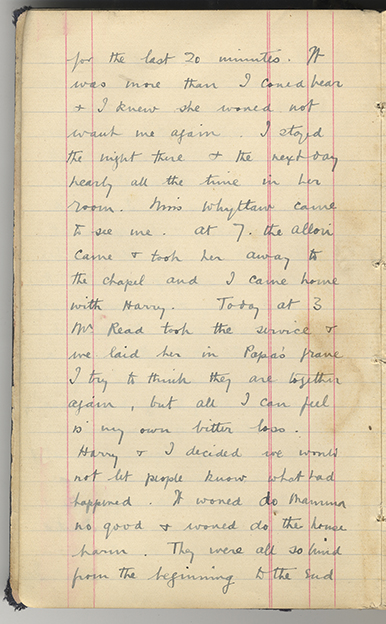 for the last 20 minutes. It
was more than I could bear
& I knew she would not
want me again. I stayed
the night there & the next day
nearly all the time in her
room. Miss Whyttaw came
to see me. At 7. the
came & took her away to
the chapel and I came home
with Harry. Today at 3
Mr Read took the service &
we laid her in Papa's grave
I try to think they are together
again, but all I can feel
is my own bitter loss.
Harry & I decided we would
not let people know what had
happened. It would do Mamma
no good & would do the house
harm. They were all so kind
from the beginning to the end